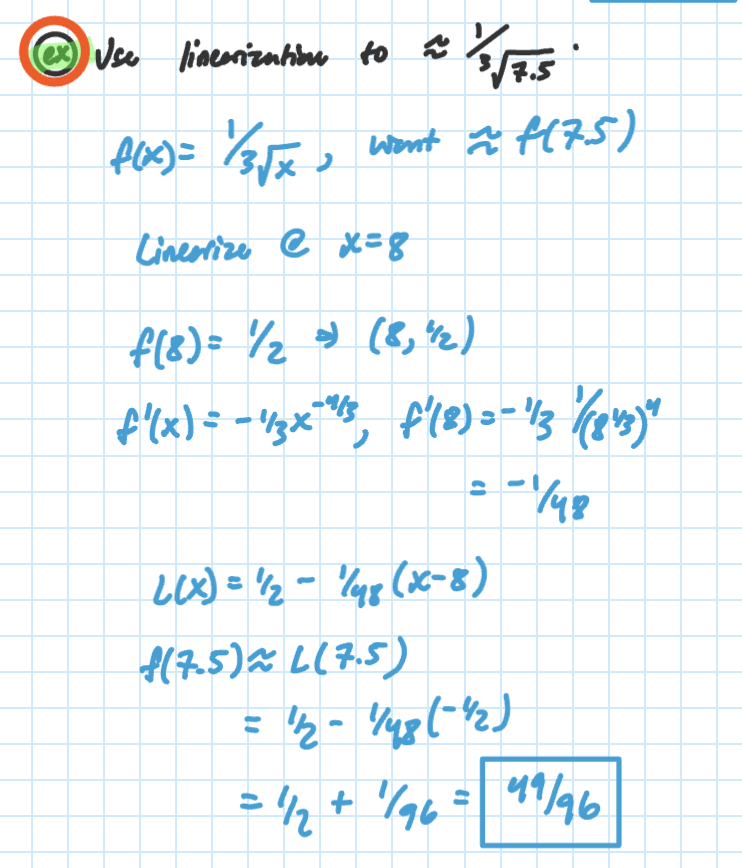 ex Use linearization to ≈ 1/³√7.5 .
f(x) = 1/³√x , want ≈ f(7.5)
Linearize @ x=8
f(8) = 1/2 → (8, 1/2)
f'(x) = -1/3 x^(-4/3), f'(8) = -1/3 1/(8^(1/3))^4
= -1/48
L(x) = 1/2 - 1/48 (x-8)
f(7.5) ≈ L(7.5)
= 1/2 - 1/48 (-1/2)
= 1/2 + 1/96 = 49/96